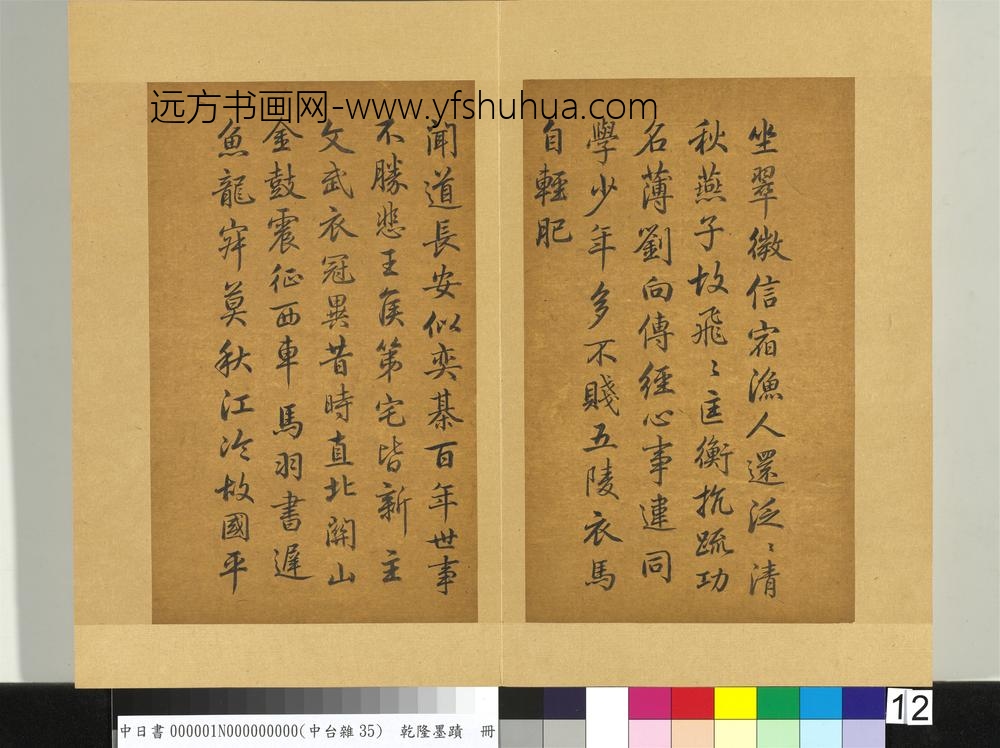 远方书画网-www.yfshuhua.com
坐翠微信宿漁人還泛〻清
秋燕子故飛〻匡衡抗疏功
名薄劉向傳經心事違同
學少年多不賤五陵衣馬
自輕肥
聞道長安似奕棊百年世事
不勝悲王侯第宅皆新主
文武衣冠異昔時直北關山
金鼓震征西車馬羽書遲
魚龍寂莫秋江冷故國平
12
中日書000001N000000000(中台雜35) 乾隆墨蹟 冊